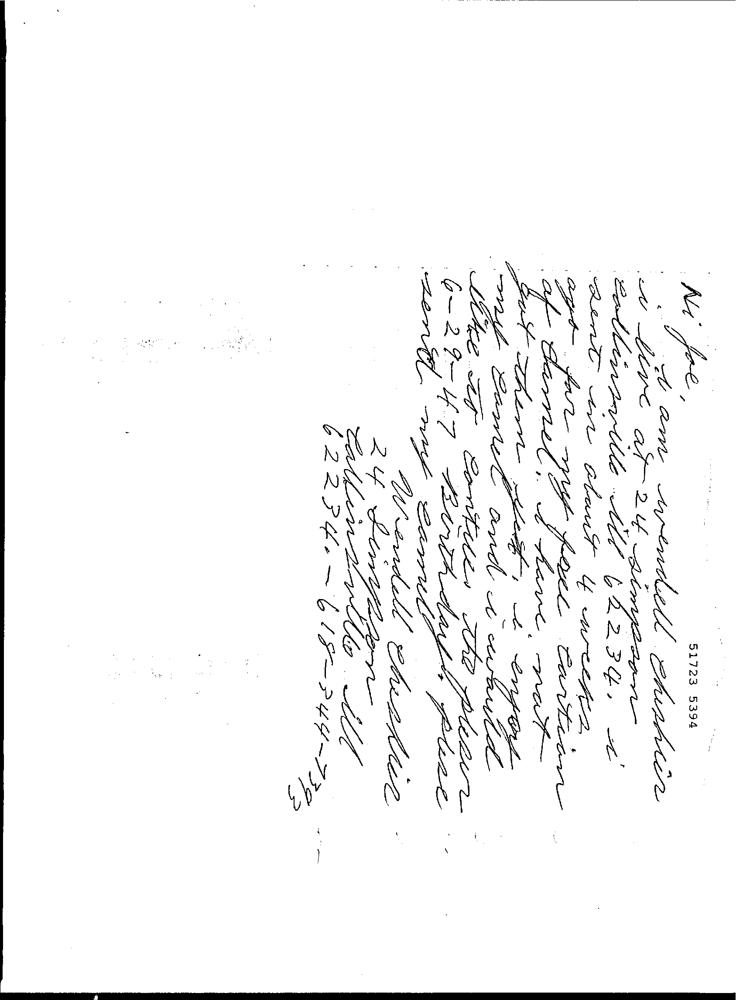 51723 5394
Hi Joe,
i am wendell Cheshier
i live at 24 simpson
Collinsville ill 62234. i
sent in about 4 weeks
ago for my free cartian
of Camel. i have not
got them yet, i enjoy
my Camel and i would
like to contuei the plesur
6-29-47 Birthday. plese
send my Camel.
Wendell Cheshier
24 Simpson
Collinsville ill
62234. - 618-344-7393